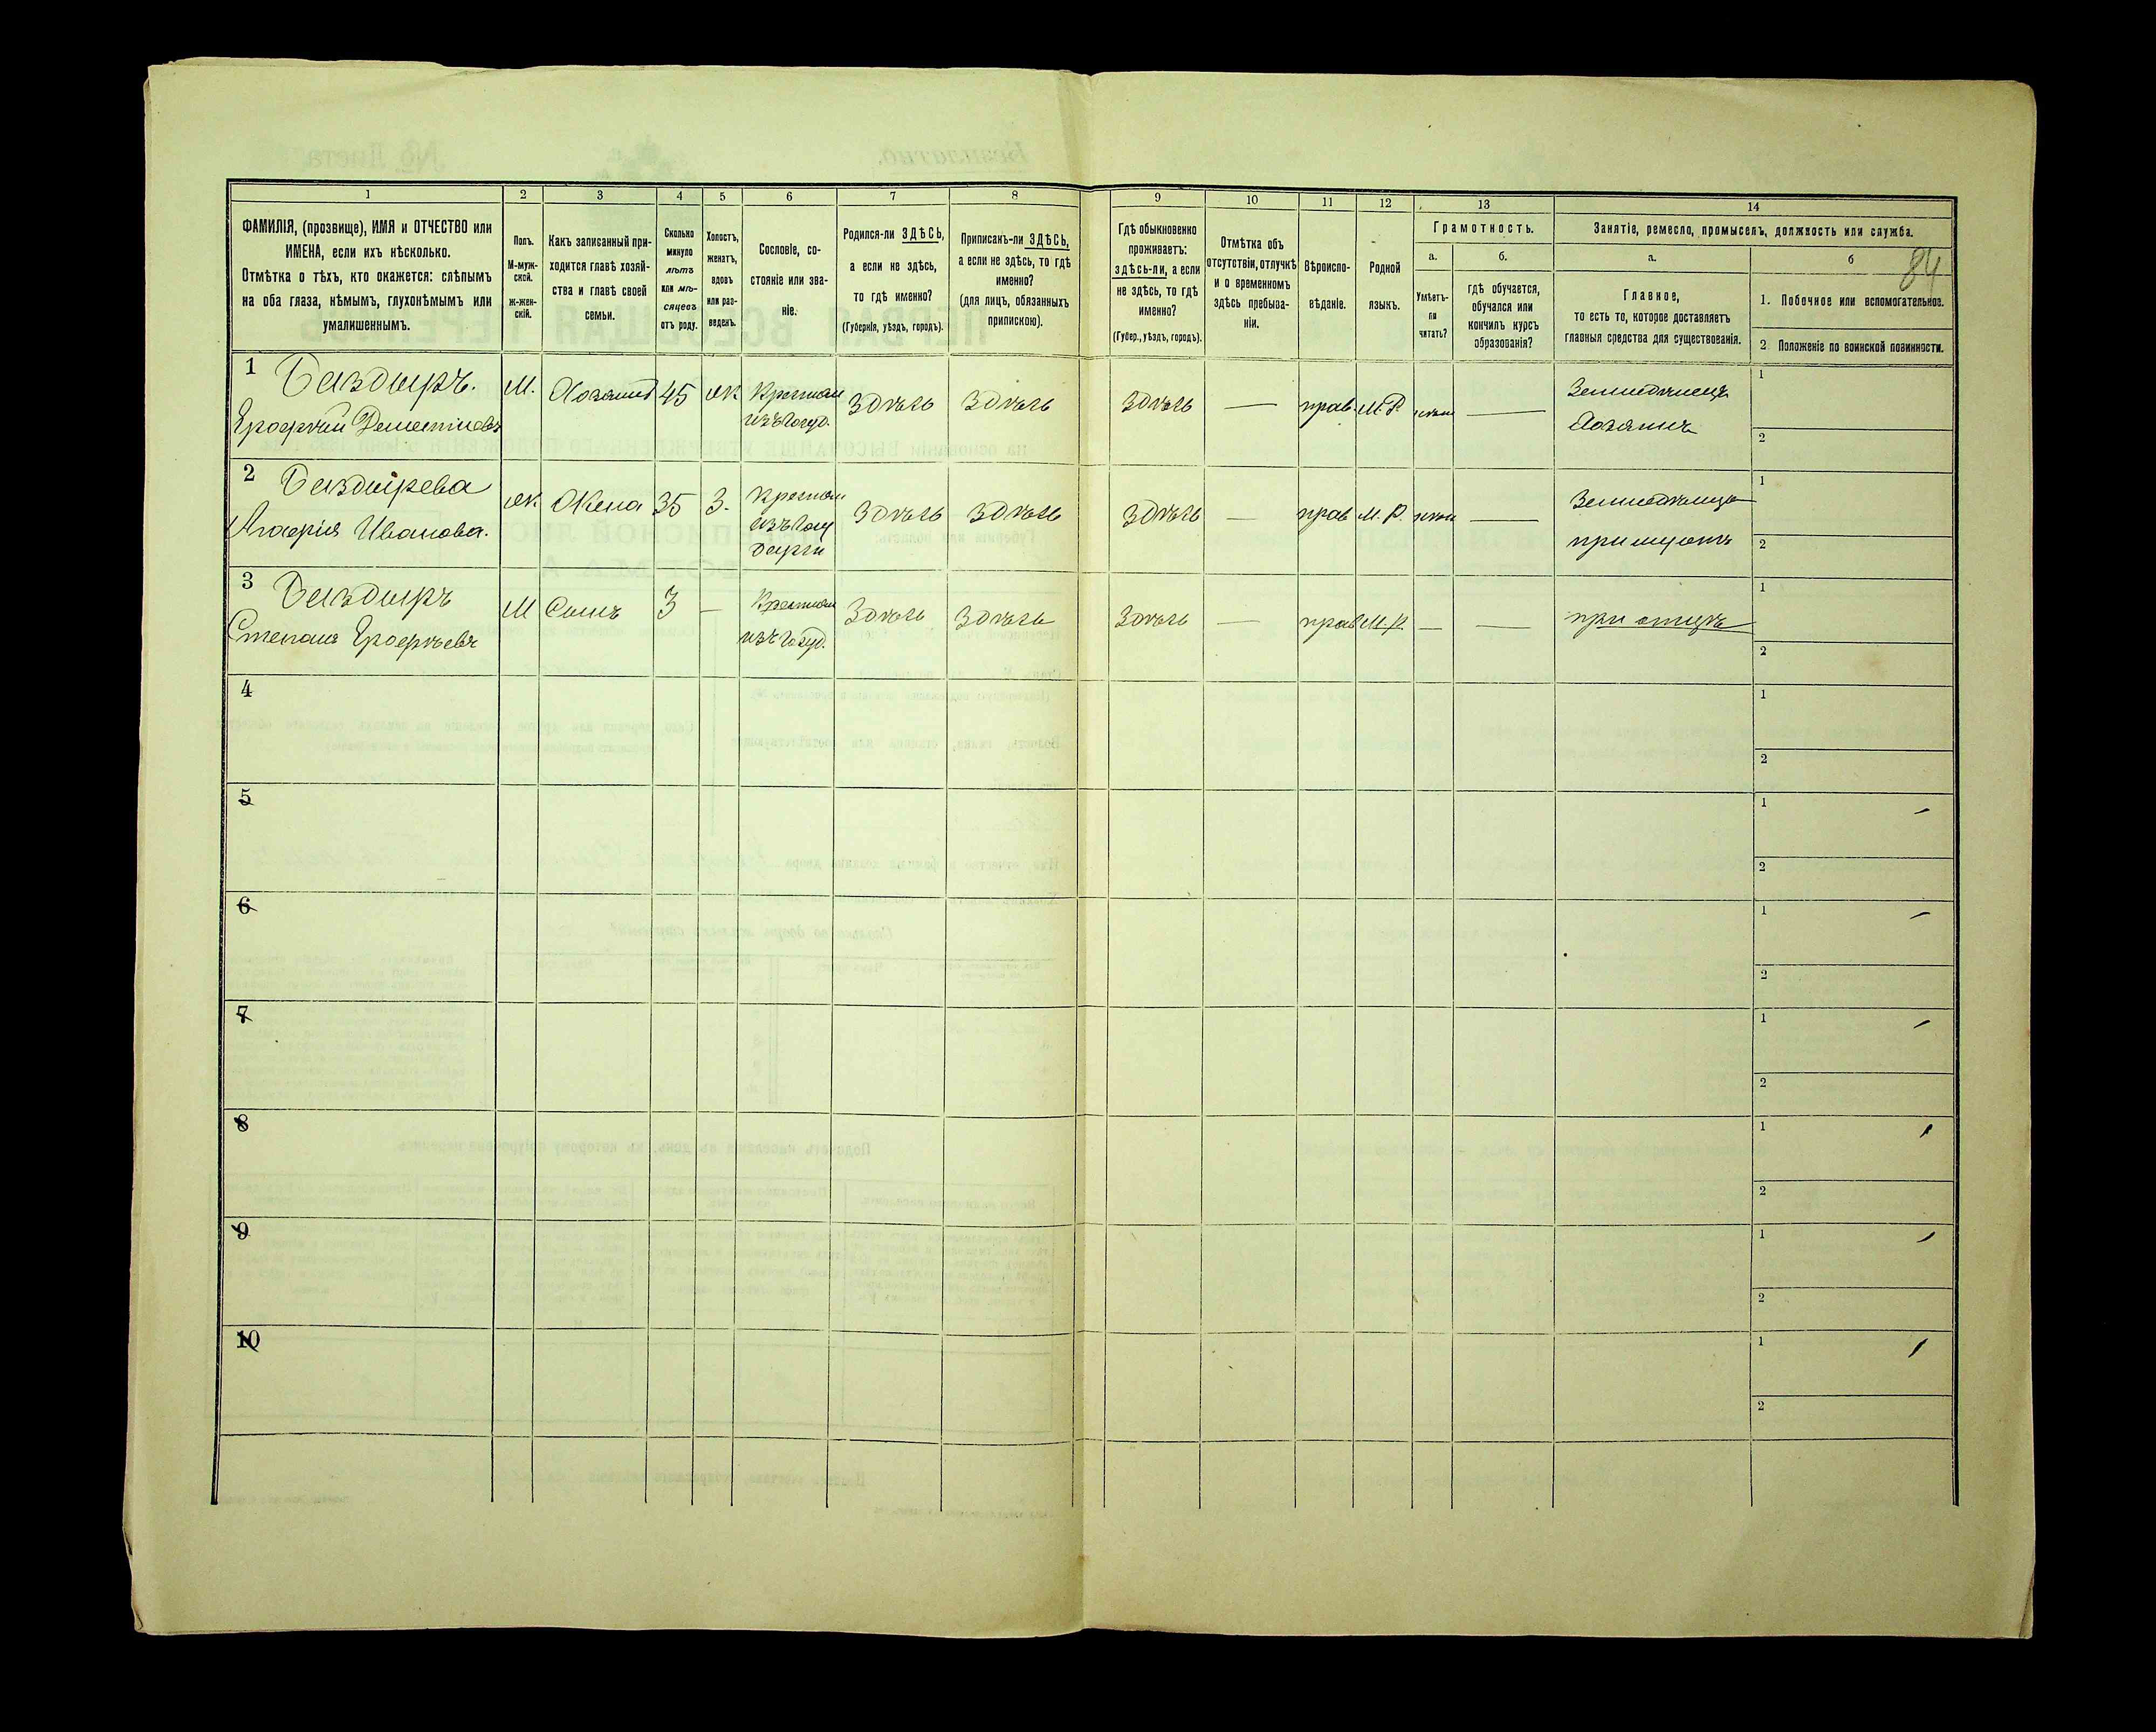 1
2
3
4
5
6
7
8
9
10
11
12
13
14
ФАМИЛІЯ, (прозвище), ИМЯ и ОТЧЕСТВО или
ИМЕНА, если ихъ нѣсколько.
Отмѣтка о тѣхъ, кто окажется: слѣпымъ
на оба глаза, нѣмымъ, глухонѣмымъ или
умалишеннымъ.
Полъ.
М-муж-
ской.
ж-жен-
скій.
Какъ записанный при-
ходится главѣ хозяй-
ства и главѣ своей
семьи.
Сколько
минуло
лѣтъ
или мѣ-
сяцевъ
отъ роду.
Холостъ,
женатъ,
вдовъ
или раз-
веденъ.
Сословіе, со-
стояніе или зва-
ніе.
Родился-ли ЗДѢСЬ,
а если не здѣсь,
то гдѣ именно?
(Губернія, уѣздъ, городъ).
Приписанъ-ли ЗДѢСЬ,
а если не здѣсь, то гдѣ
именно?
(для лицъ, обязанныхъ
припискою).
Гдѣ обыкновенно
проживаетъ:
здѣсь-ли, а если
не здѣсь, то гдѣ
именно?
(Губер., уѣздъ, городъ).
Отмѣтка объ
отсутствіи, отлучкѣ
и о временномъ
здѣсь пребыва-
ніи.
Вѣроиспо-
вѣданіе.
Родной
языкъ.
Грамотность.
а.
б.
Умѣетъ-
ли
читать?
гдѣ обучается,
обучался или
кончилъ курсъ
образованія?
Занятіе, ремесло, промыселъ, должность или служба.
а.
б
84
Главное,
то есть то, которое доставляетъ
главныя средства для существованія.
1. Побочное или вспомогательное.
2 Положеніе по воинской повинности.
1 Баздыръ. М. Хозяинъ 45 ж Крестьян здѣсь здѣсь здѣсь — прав. М.Р. нѣтъ — Земледѣлецъ 1
Ерофей изъ госуд. Хозяинъ 2
2 Баздырева ж Жена 35 З. Крестьян здѣсь здѣсь здѣсь — прав М.Р. нѣтъ — 1
Агафія Иванова. изъ при мужѣ 2
3 Баздыръ М Сынъ 3 — Крестьян здѣсь здѣсь здѣсь — прав М.Р. — — при отцѣ 1
Степанъ Ерофѣевъ изъ госуд. 2
4 1
2
5 1
2
6 1
2
7 1
2
8 1
2
9 1
2
10 1
2